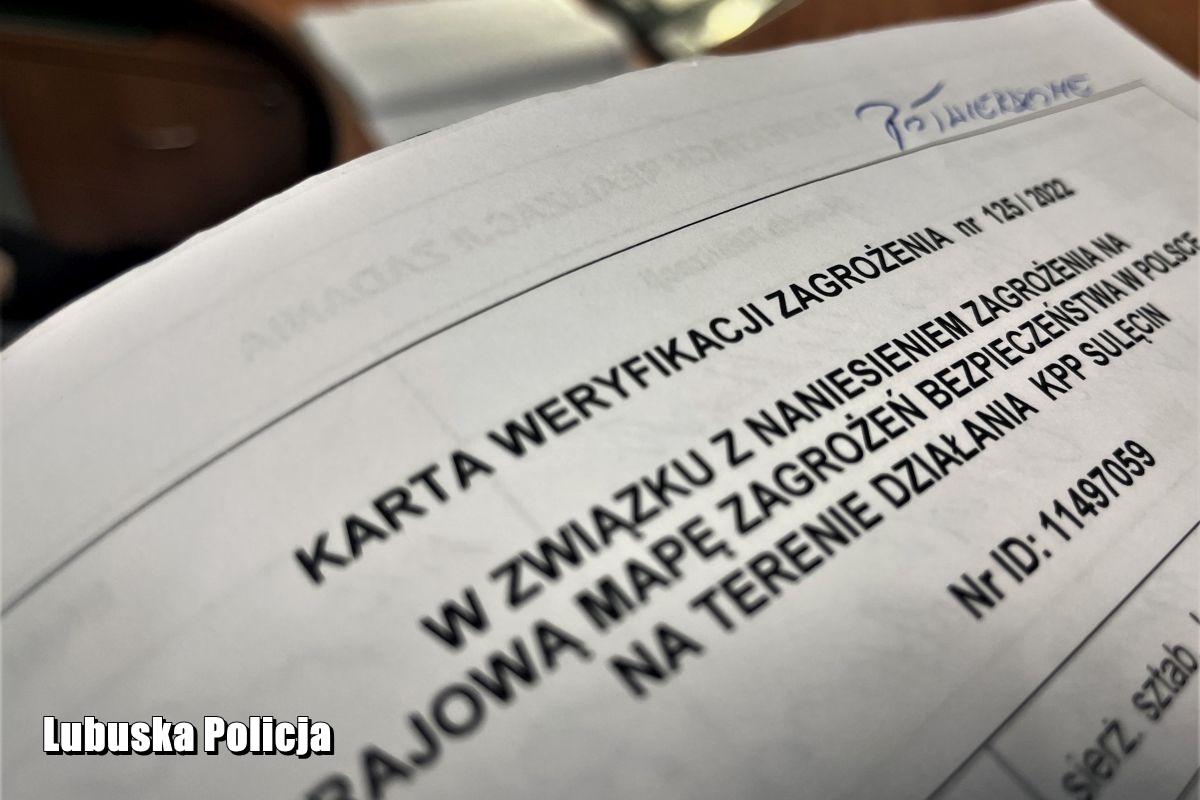 POTWIERDZONE
KARTA WERYFIKACJI ZAGROŻENIA nr 125 / 2022
W ZWIĄZKU Z NANIESIENIEM ZAGROŻENIA NA
RAJOWĄ MAPĘ ZAGROŻEŃ BEZPIECZEŃSTWA W POLSCE
NA TERENIE DZIAŁANIA KPP SULĘCIN
Nr ID: 11497059
sierż. sztab
Lubuska Policja